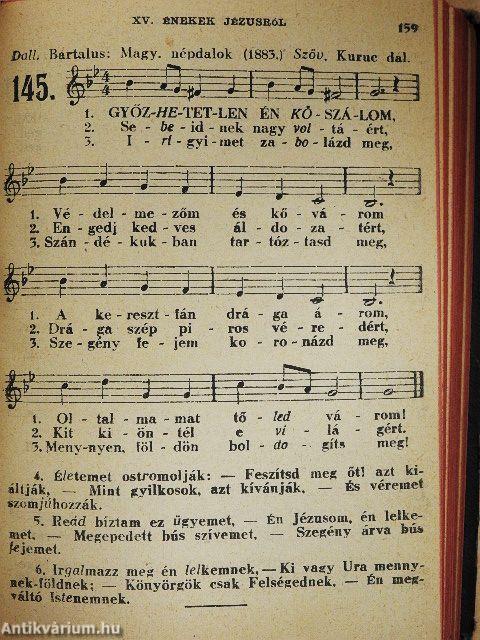 XV. ÉNEKEK JÉZUSRÓL
159
Dall. Bartalus: Magy. népdalok (1883.) Szöv. Kuruc dal.
145.
4 4
1. GYŐZ-HE-TET-LEN ÉN KŐ-SZÁ-LOM,
2. Se - be - id - nek nagy vol - tá - ért,
3. I - ri - gyi - met za - bo - lázd meg,
1. Vé - del - me - zőm és kő - vá - rom
2. En - gedj ked - ves ál - do - za - tért,
3. Szán - dé - kuk - ban tar - tóz - tasd meg,
1. A ke - reszt - fán drá - ga á - rom,
2. Drá - ga szép pi - ros vé - re - dért,
3. Sze - gény fe - jem ko - ro - názd meg,
1. Ol - tal - ma - mat tő - led vá - rom!
2. Kit ki - ön - tél e vi - lá - gért.
3. Meny-nyen, föl - dön bol - do - gíts meg!
4. Életemet ostromolják: — Feszítsd meg őt! azt ki-
áltják, — Mint gyilkosok, azt kívánják. — És véremet
szomjúhozzák.
5. Reád bíztam ez ügyemet, — Én Jézusom, én lelke-
met, — Megepedett bús szívemet. — Szegény árva bús
fejemet.
6. Irgalmazz meg én lelkemnek, — Ki vagy Ura menny-
nek-földnek; — Könyörgök csak Felségednek, — Én meg-
váltó Istenemnek.
Antikvárium.hu